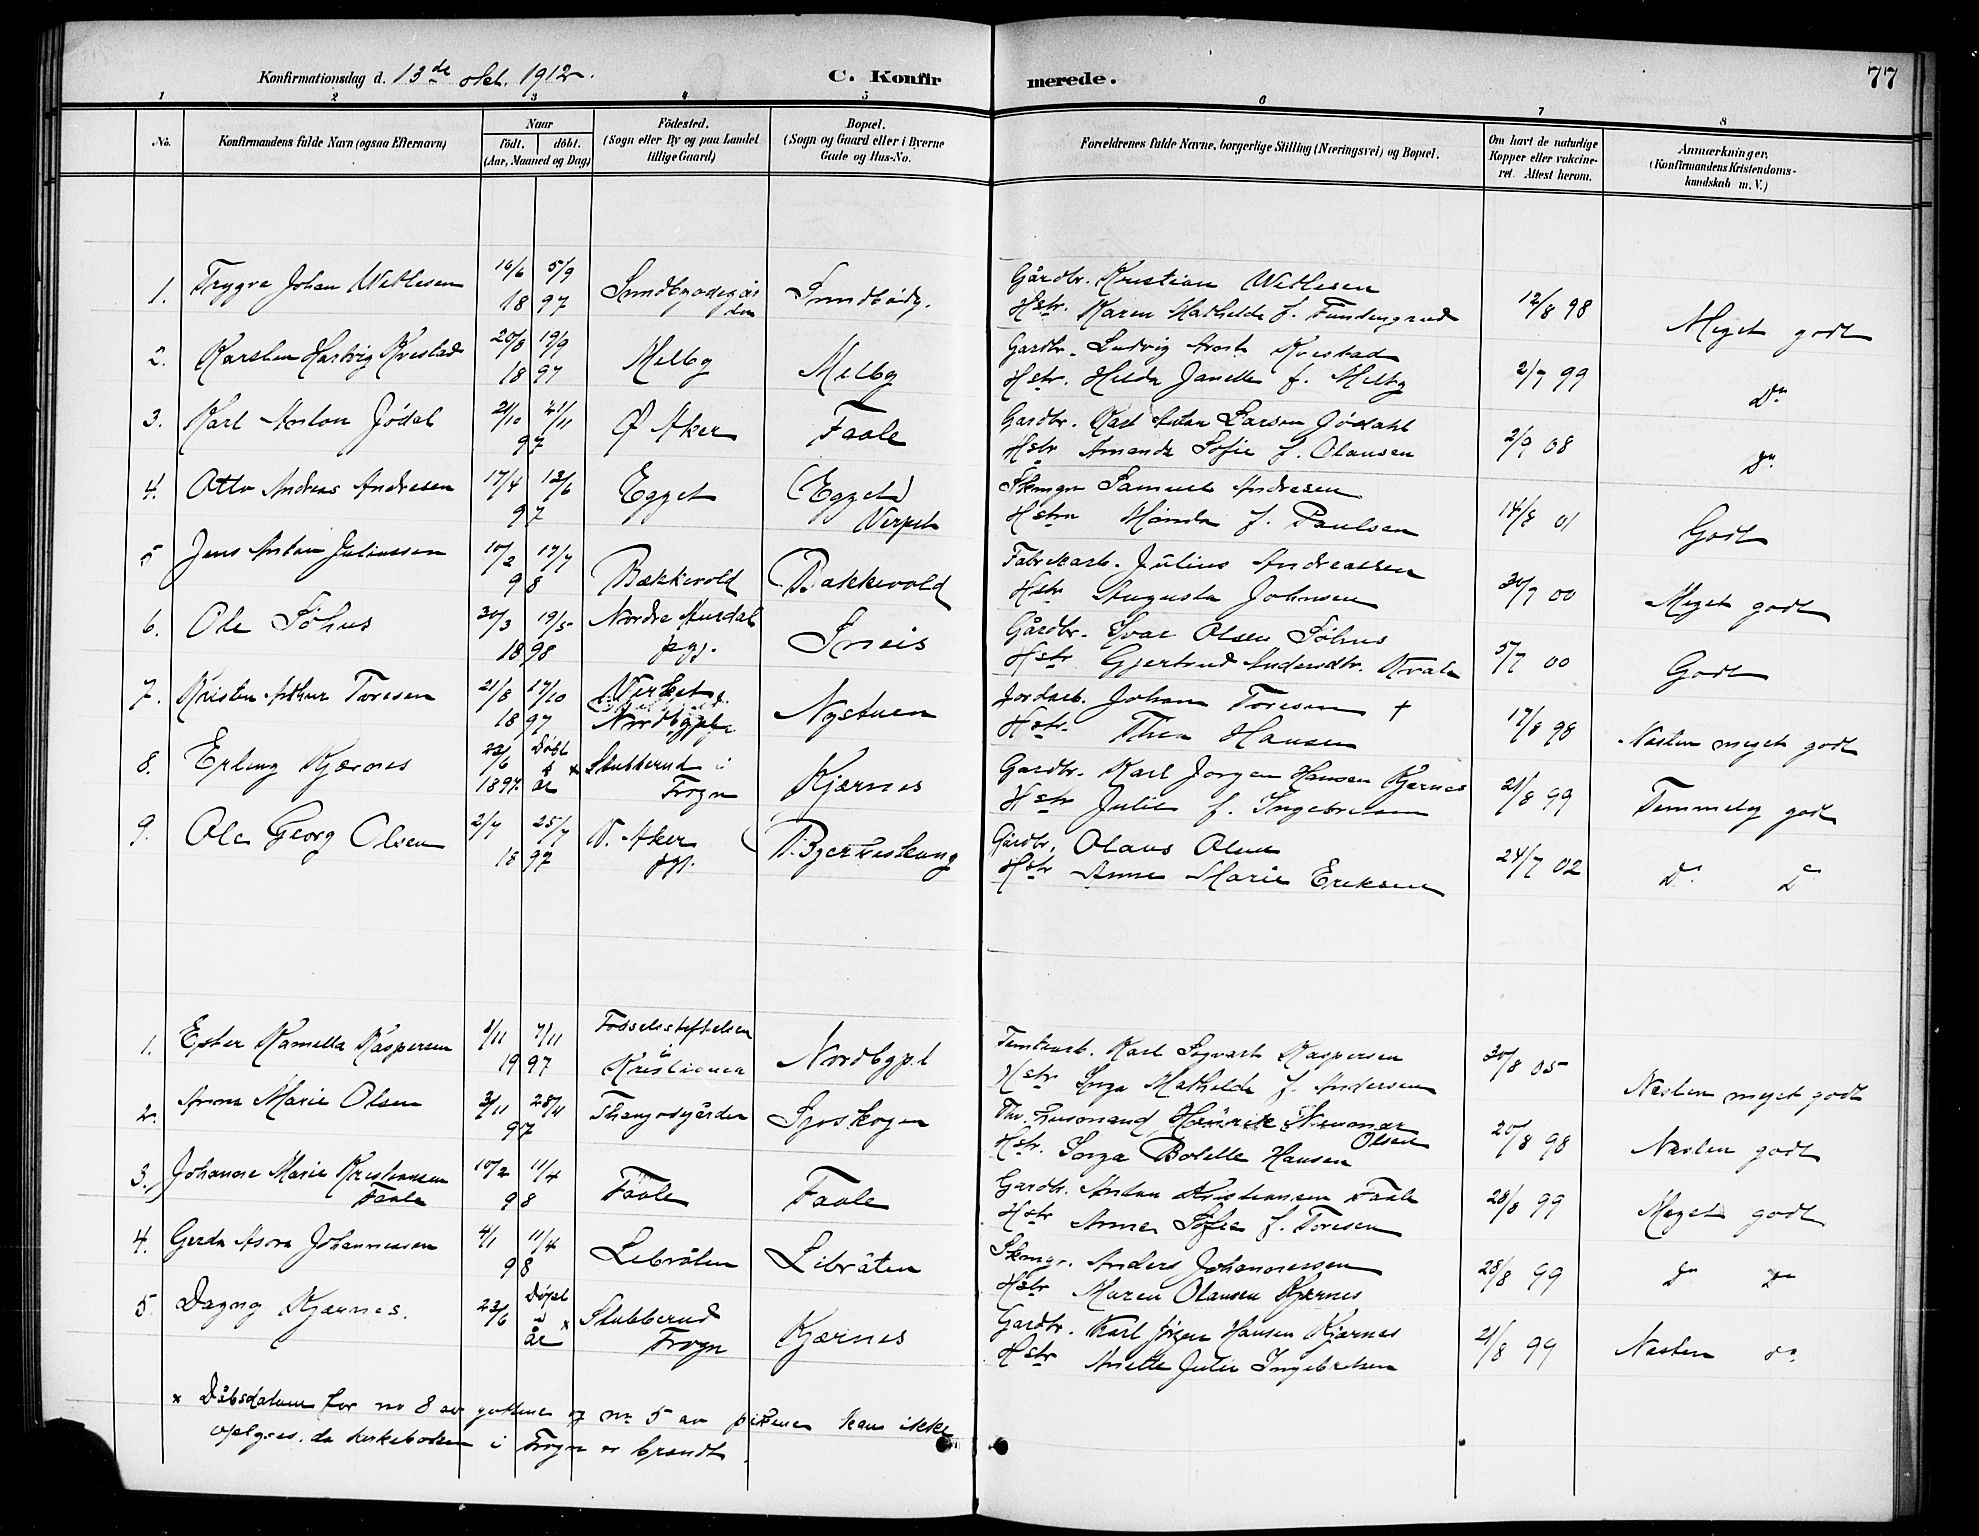 Konfirmationsdag d. 13de okt. 1912. C. Konfirmerede. 77
1 2 3 4 5 6 7 8
No. Konfirmandens fulde Navn (ogsaa Efternavn) Naar födt. döbt. (Aar, Maaned og Dag) Födested. (Sogn eller By og paa Landet tillige Gaard) Bopæl. (Sogn og Gaard eller i Byerne Gade og Hus-No. Forældrenes fulde Navne, borgerlige Stilling (Næringsvei) og Bopæl. Om havt de naturlige Kopper eller vakcineret. Attest herom. Anmærkninger. (Konfirmandens Kristendomskundskab m. V.)
1. Trygve Johan Wetlesen 16/6 5/9 1897 Sundby. Gårdbr. Kristian Wetlesen
Hstr. Karen Mathilde f. 12/8 98 Meget godt
2. Karsten Hartvig Kvestad 20/8 19/9 1897 Melby Melby Gardbr. Ludvig Kvestad
Hstr. Hilda Janette f. Melby 2/7 99 Do
3. Karl Anton Jödal 21/10 21/11 97 Ø Aker Faale Gardbr. Karl Anton Larsen Jödahl
Hstr Amanda Sofie f. Olausen 2/9 08 do
4. Otto Andreas Andresen 17/4 12/6 97 Egget (Egget) Verpet Skmgr Samuel Andresen
Hstru f. Paulsen 14/8 01 Godt
5 Jens Anton Juliussen 10/2 17/7 98 Bækkevold Bakkevold Fabrikarb. Julius Andreassen
Hstr Augusta Johnsen 30/7 00 Meget godt
6. Ole Söhus 30/3 19/5 1898 Nordre Aurdal pgj. Sneis Gårdbr. Ivar Olsen Söhus
Hstr Gjertrud Andersdtr. Kvale 5/7 00 Godt
7. Kristen Arthur Toresen 21/8 17/10 1897 Nordbypl Nystuen Jordarb. Johan Toresen +
Hstr. Thea Hansen 17/8 98 Næsten meget godt
8. Erling Kjærnes 23/6 1897. Döbt s år × Stubberud i Frogn Kjærnes Gardbr. Karl Jorgen Hansen Kjernes
Hstr Julie f. Ingebretsen 21/8 99 Temmelig godt
9. Ole Georg Olsen 2/7 25/7 1897 V. Aker pgj. Gårdbr. Olaus Olsen
Hstr Anne Marie Eriksen 24/7 02 Do Do
1. Ester Kamella Kaspersen 3/11 7/11 1997 Födselsstiftelsen i Kristiania Nordbypl Tomtearb. Karl Sigvart Kaspersen
Hstr Inga Mathilde f. Andersen 30/8 05 Næsten meget godt
2. Anna Marie Olsen 3/11 28/11 97 Sjöskogen Henrik Neumar Olsen
Hstr. Inga Bolette Hansen 20/8 98 Næsten godt
3. Johanne Marie Kristiansen Faale 10/2 11/4 98 Faale Faale Gardbr. Anton Kristiansen Faale
Hstr Anne Sofie f. Toresen 28/8 99 Meget godt
4. Gerda Asora Johannessen 4/1 11/4 98 Libråten Libråten Skmgr. Anders Johannessen
Hstr Maren Olausen Kjærnes 28/8 99 do do
5. Dagny Kjærnes. 23/6 Döpt s år × Stubberud Frogn Kjærnes Gardbr. Karl Jörgen Hansen Kjærnes
Hstr Anette Julie Ingebretsen 21/8 99 Næsten do.
× Dåbsdatum for no 8 av guttene og no 5 av pikene kan ikke
opgives, da kirkeboken i Frogn er brændt.